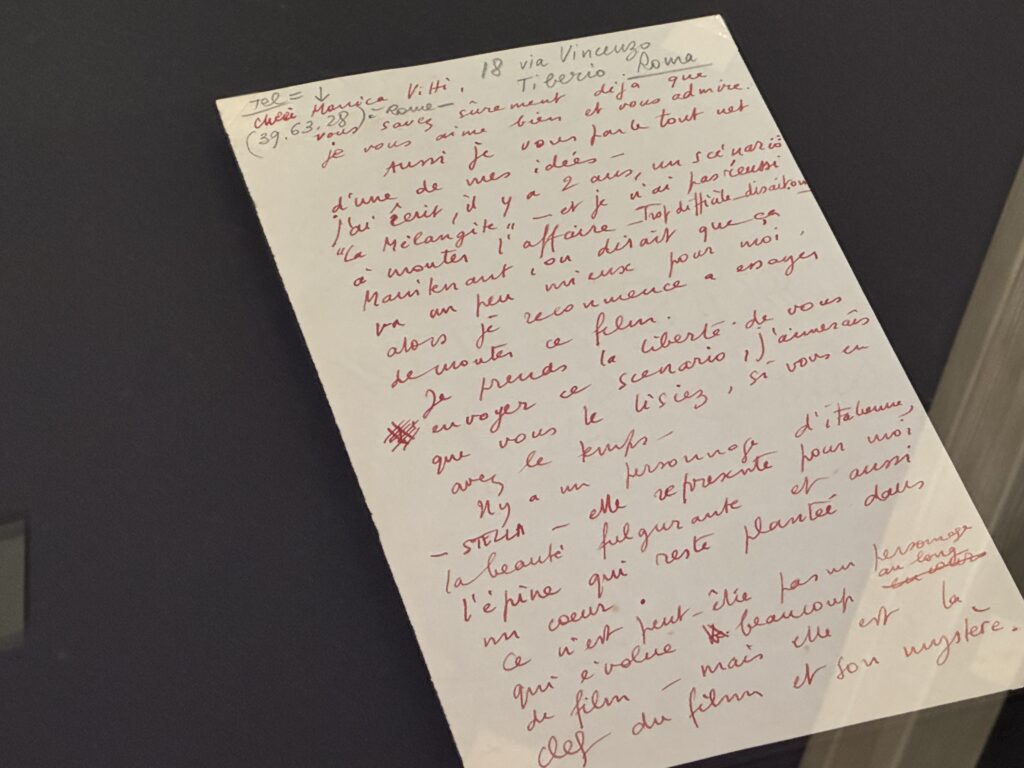 18 via Vincenzo
Tiberio Roma
Tel = ↓
(39.63.28) = Rome –
Chère Monica Vitti,
vous savez sûrement déjà que
je vous aime bien et vous admire.
Aussi je vous parle tout net
d'une de mes idées –
J'ai écrit, il y a 2 ans, un scénario
"La Mélangite" – et je n'ai pas réussi
à monter l'affaire – Trop difficile disait-on
Maintenant, on dirait que ça
va un peu mieux pour moi.
alors je recommence a essayer
de monter ce film.
Je prends la liberté de vous
envoyer ce scenario, j'aimerais
que vous le lisiez, si vous en
avez le temps –
Il y a un personnage d'italienne,
– STELLA – elle represente pour moi
la beauté fulgurante et aussi
l'épine qui reste plantée dans
un coeur.
Ce n'est peut-être pas un personnage
qui évolue beaucoup au long
du film – mais elle est la
clef du film et son mystère.